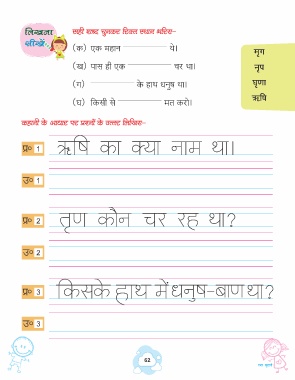 लिखना
सीखें
सही शब्द चुनकर रिक्त स्थान भरिए-
(क) एक महान थे।
(ख) पास ही एक चर था।
(ग) के हाथ धनुष था।
(घ) किसी से मत करो।
मृग
नृप
घृणा
ऋषि
कहानी के आधार पर प्रश्नों के उत्तर लिखिए-
प्र० 1 ऋषि का क्या नाम था।
उ० 1
प्र० 2 तृण कौन चर रह था?
उ० 2
प्र० 3 किसके हाथ में धनुष-बाण था?
उ० 3
62